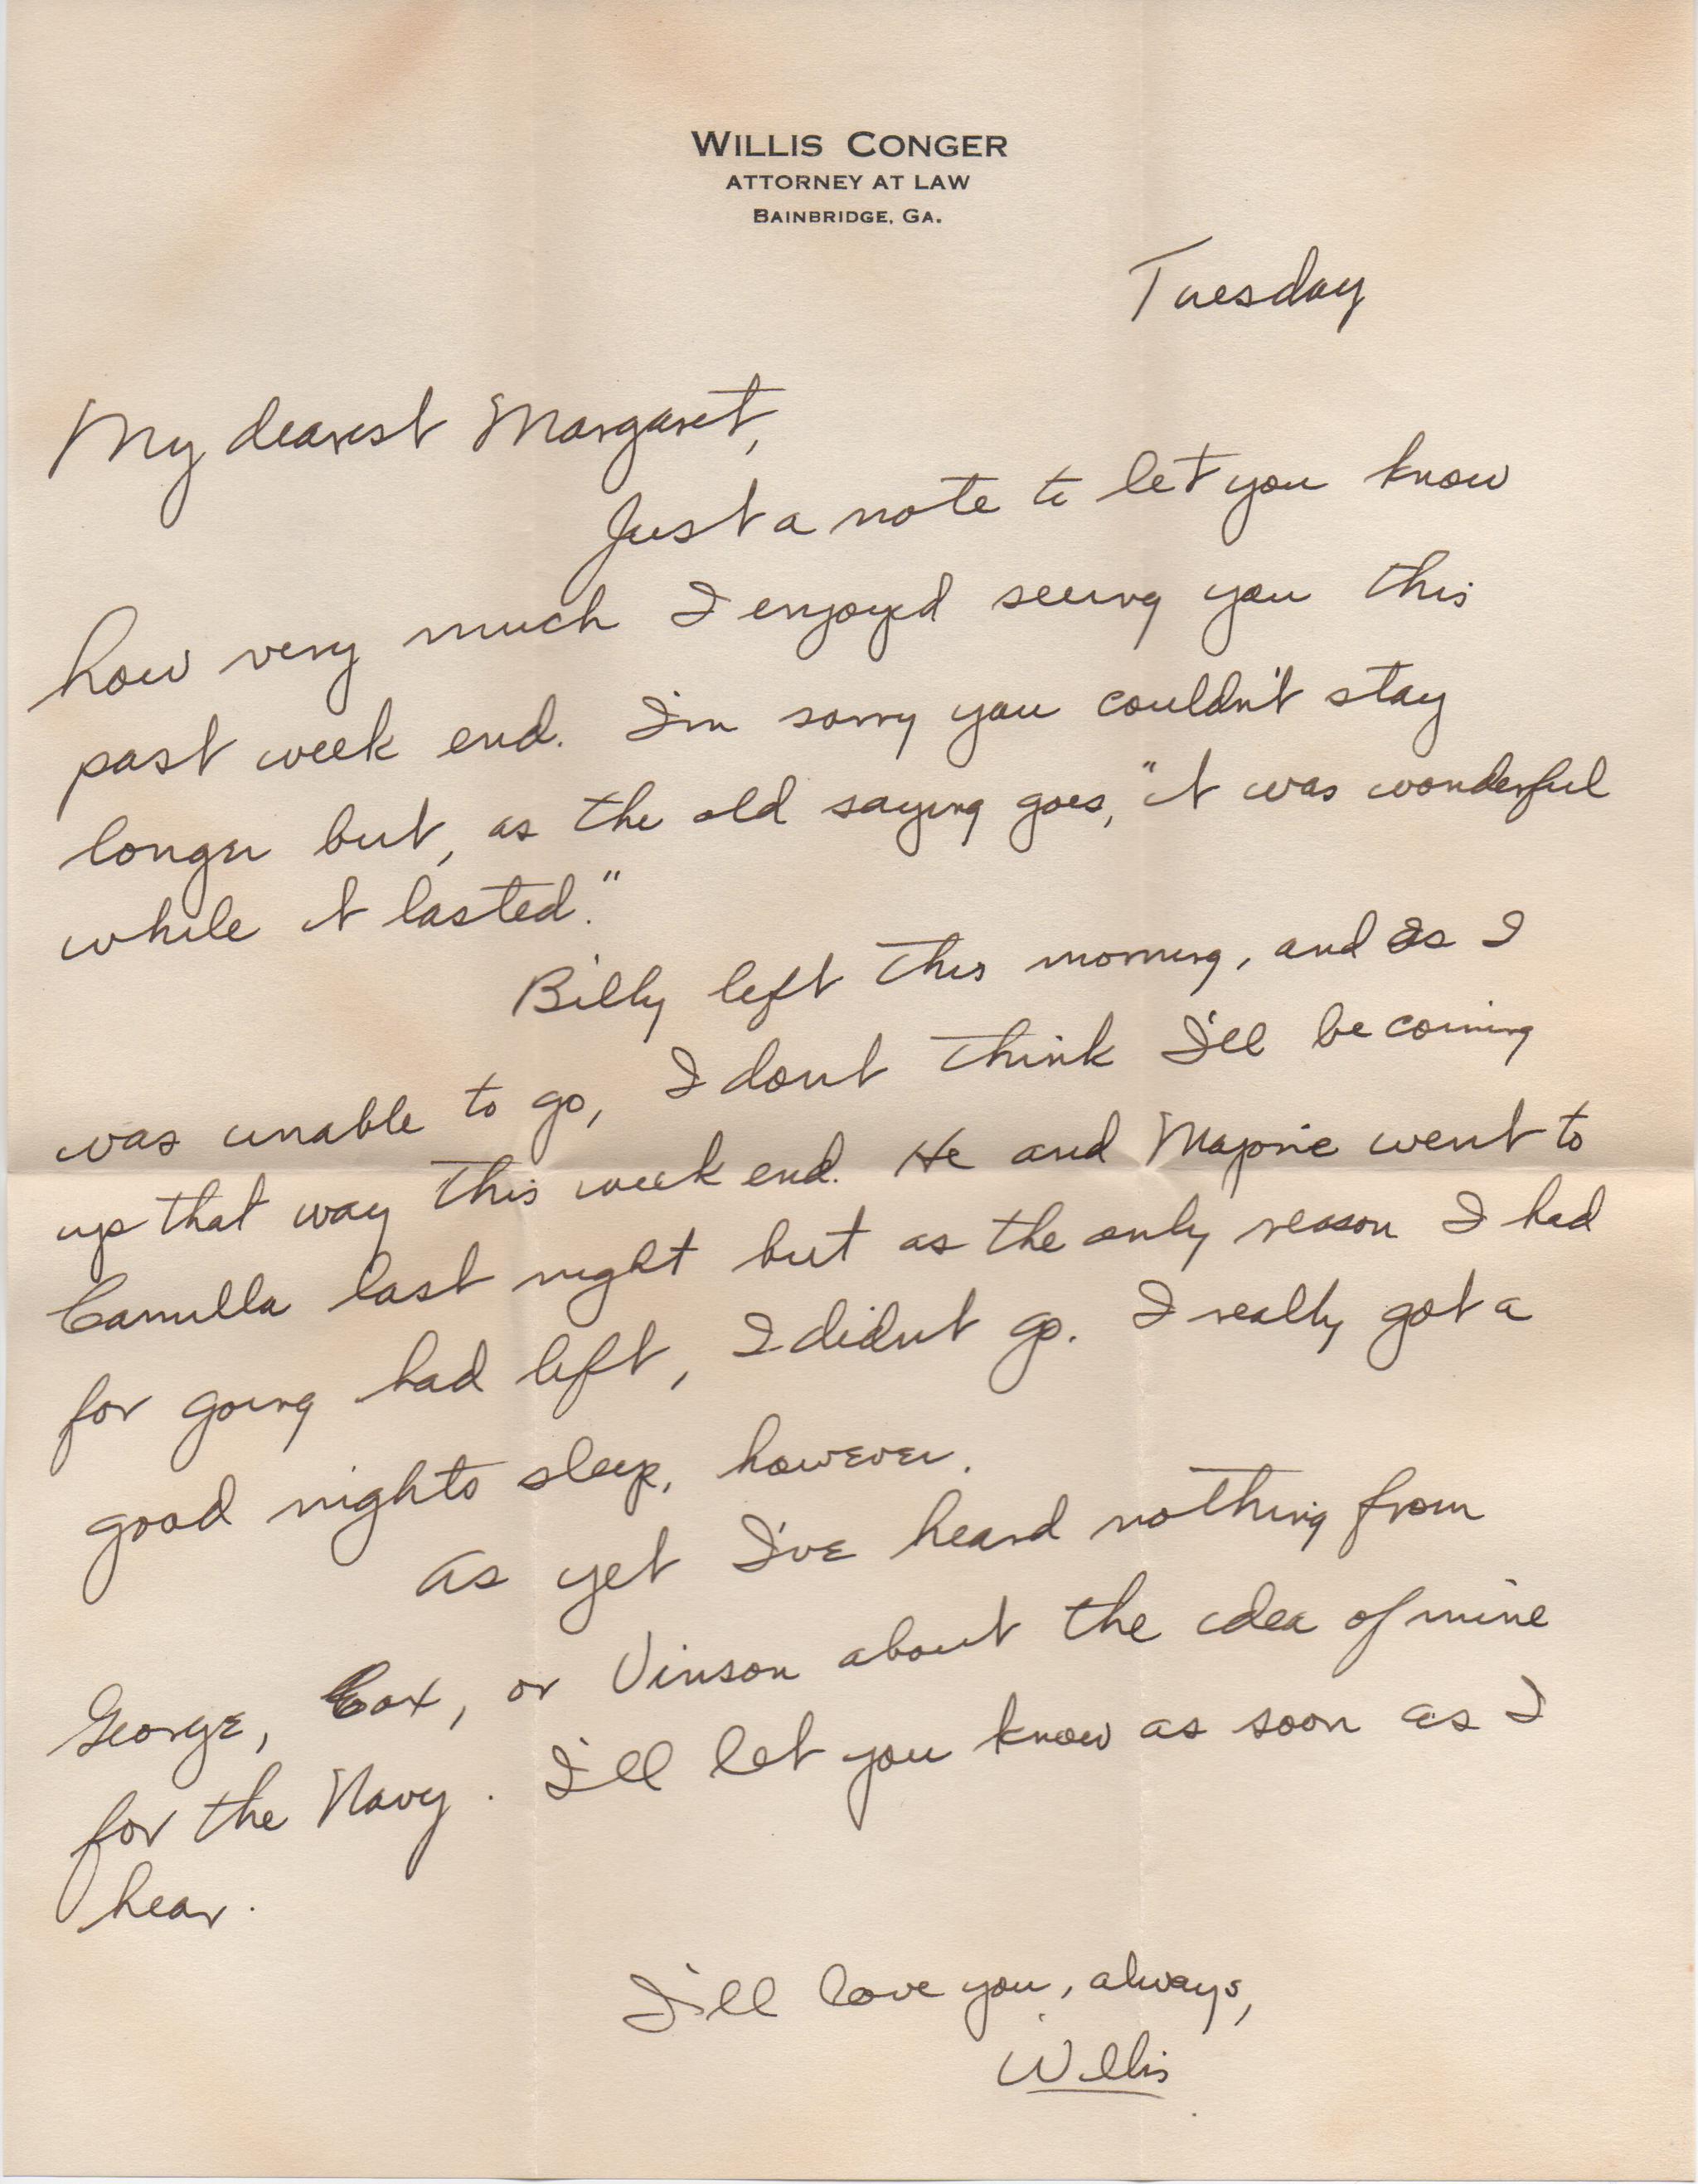 WILLIS CONGER
ATTORNEY AT LAW
BAINBRIDGE, GA.
Tuesday
My dearest Margaret,
Just a note to let you know
how very much I enjoyed seeing you this
past week end. I'm sorry you couldn't stay
longer but, as the old saying goes, "it was wonderful
while it lasted."
Billy left this morning, and as I
was unable to go, I dont think I'll be coming
up that way this week end. He and Majorie went to
Camilla last night but as the only reason I had
for going had left, I didnt go. I really got a
good nights sleep, however.
As yet I've heard nothing from
George, Cox, or Vinson about the idea of mine
for the Navy. I'll let you know as soon as I
hear.
I'll love you, always,
Willis